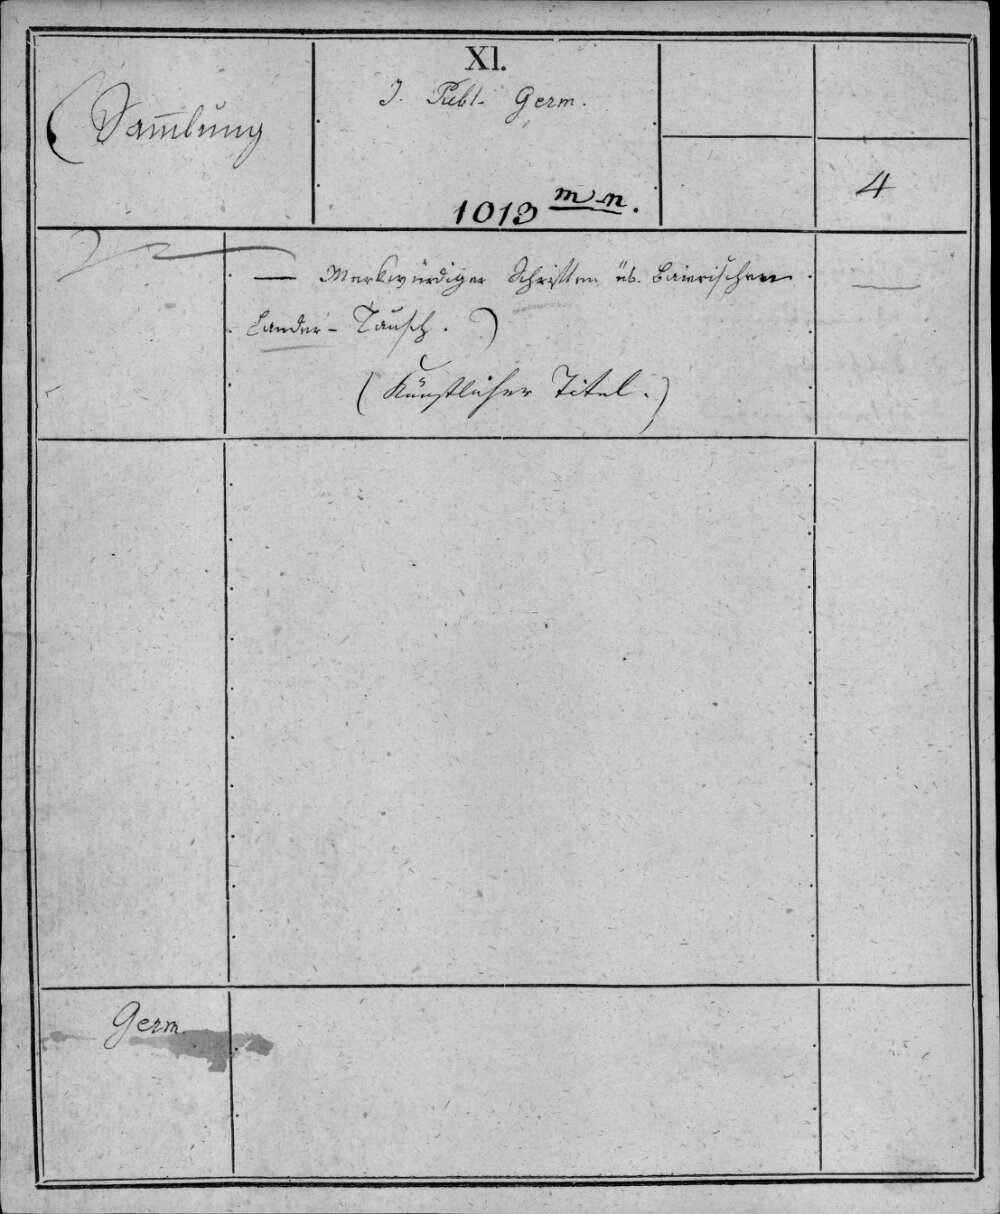 XI.
J. Publ. Germ.
(Sam̄lung
1013 m-n.
4
— Merkwürdiger Schriften üb. Baierischen
Länder-Tausch.)
(Künstlicher Titel.)
Germ.